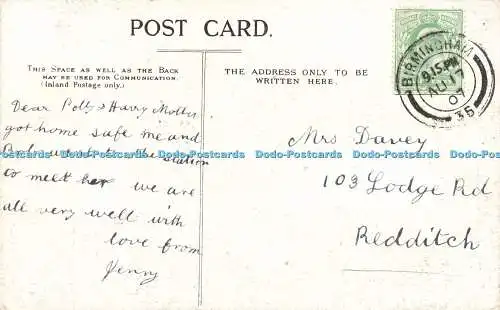 POST CARD.
THIS SPACE AS WELL AS THE BACK
MAY BE USED FOR COMMUNICATION.
(Inland Postage only.)
THE ADDRESS ONLY TO BE
WRITTEN HERE.
BIRMINGHAM
9.15 PM
AU 17
07
36
Dear Polly & Harry Mother
got home safe me and
went to the station
to meet her we are
all very well with
love from
Jenny
Mrs Davey
103 Lodge Rd
Redditch
Dodo-Postcards Dodo-Postcards Dodo-Postcards Dodo-Postcards Dodo-Postcards